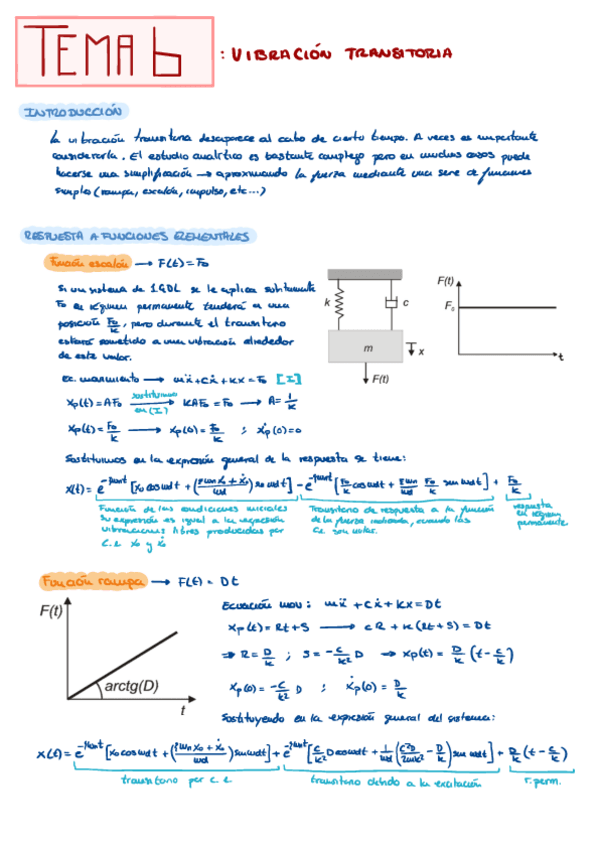 TEMA 6 : VIBRACIÓN TRANSITORIA
INTRODUCCIÓN
La vibración transitoria desaparece al cabo de cierto tiempo. A veces es importante
considerarla. El estudio analítico es bastante complejo pero en muchos casos puede
hacerse una simplificación → aproximando la fuerza mediante una serie de funciones
simples (rampa, escalón, impulso, etc...)
RESPUESTA A FUNCIONES ELEMENTALES
Función escalón → F(t) = F₀
Si un sistema de 1GDL se le aplica súbitamente
F₀ en régimen permanente tenderá a una
posición F₀/k, pero durante el transitorio
estará sometido a una vibración alrededor
de este valor.
k
c
m
x
F(t)
F(t)
F₀
t
Ec. movimiento → mẍ + cẋ + kx = F₀ [I]
xp(t) = AF₀ sustituimos en (I) → KAF₀ = F₀ → A = 1/k
xp(t) = F₀/k → xp(0) = F₀/k ; ẋp(0) = 0
Sustituimos en la expresión general de la respuesta se tiene:
x(t) = e^-ξωnt [x₀ cos ωd t + (ξωn x₀ + ẋ₀/ωd) sen ωd t] - e^-ξωnt [F₀/k cos ωd t + ξωn/ωd F₀/k sen ωd t] + F₀/k
Función de las condiciones iniciales
Su expresión es igual a la
vibraciones libres producidas por
c.i. x₀ y ẋ₀
Transitorio de respuesta a la función
de la fuerza indicada, cuando las
c.i. son nulas.
respuesta
en régimen
permanente
Función rampa → F(t) = Dt
F(t)
arctg(D)
t
Ecuación mov: mẍ + cẋ + kx = Dt
xp(t) = Rt + S → cR + k(Rt + S) = Dt
⇒ R = D/k ; S = -c/k² D → xp(t) = D/k (t - c/k)
xp(0) = -c/k² D ; ẋp(0) = D/k
Sustituyendo en la expresión general del sistema:
x(t) = e^-ξωnt [x₀ cos ωd t + (ξωn x₀ + ẋ₀/ωd) sen ωd t] + e^-ξωnt [c/k² D cos ωd t + 1/ωd (c²D/2mk² - D/k) sen ωd t] + D/k (t - c/k)
transitorio por c.i.
transitorio debido a la excitación
r. perm.